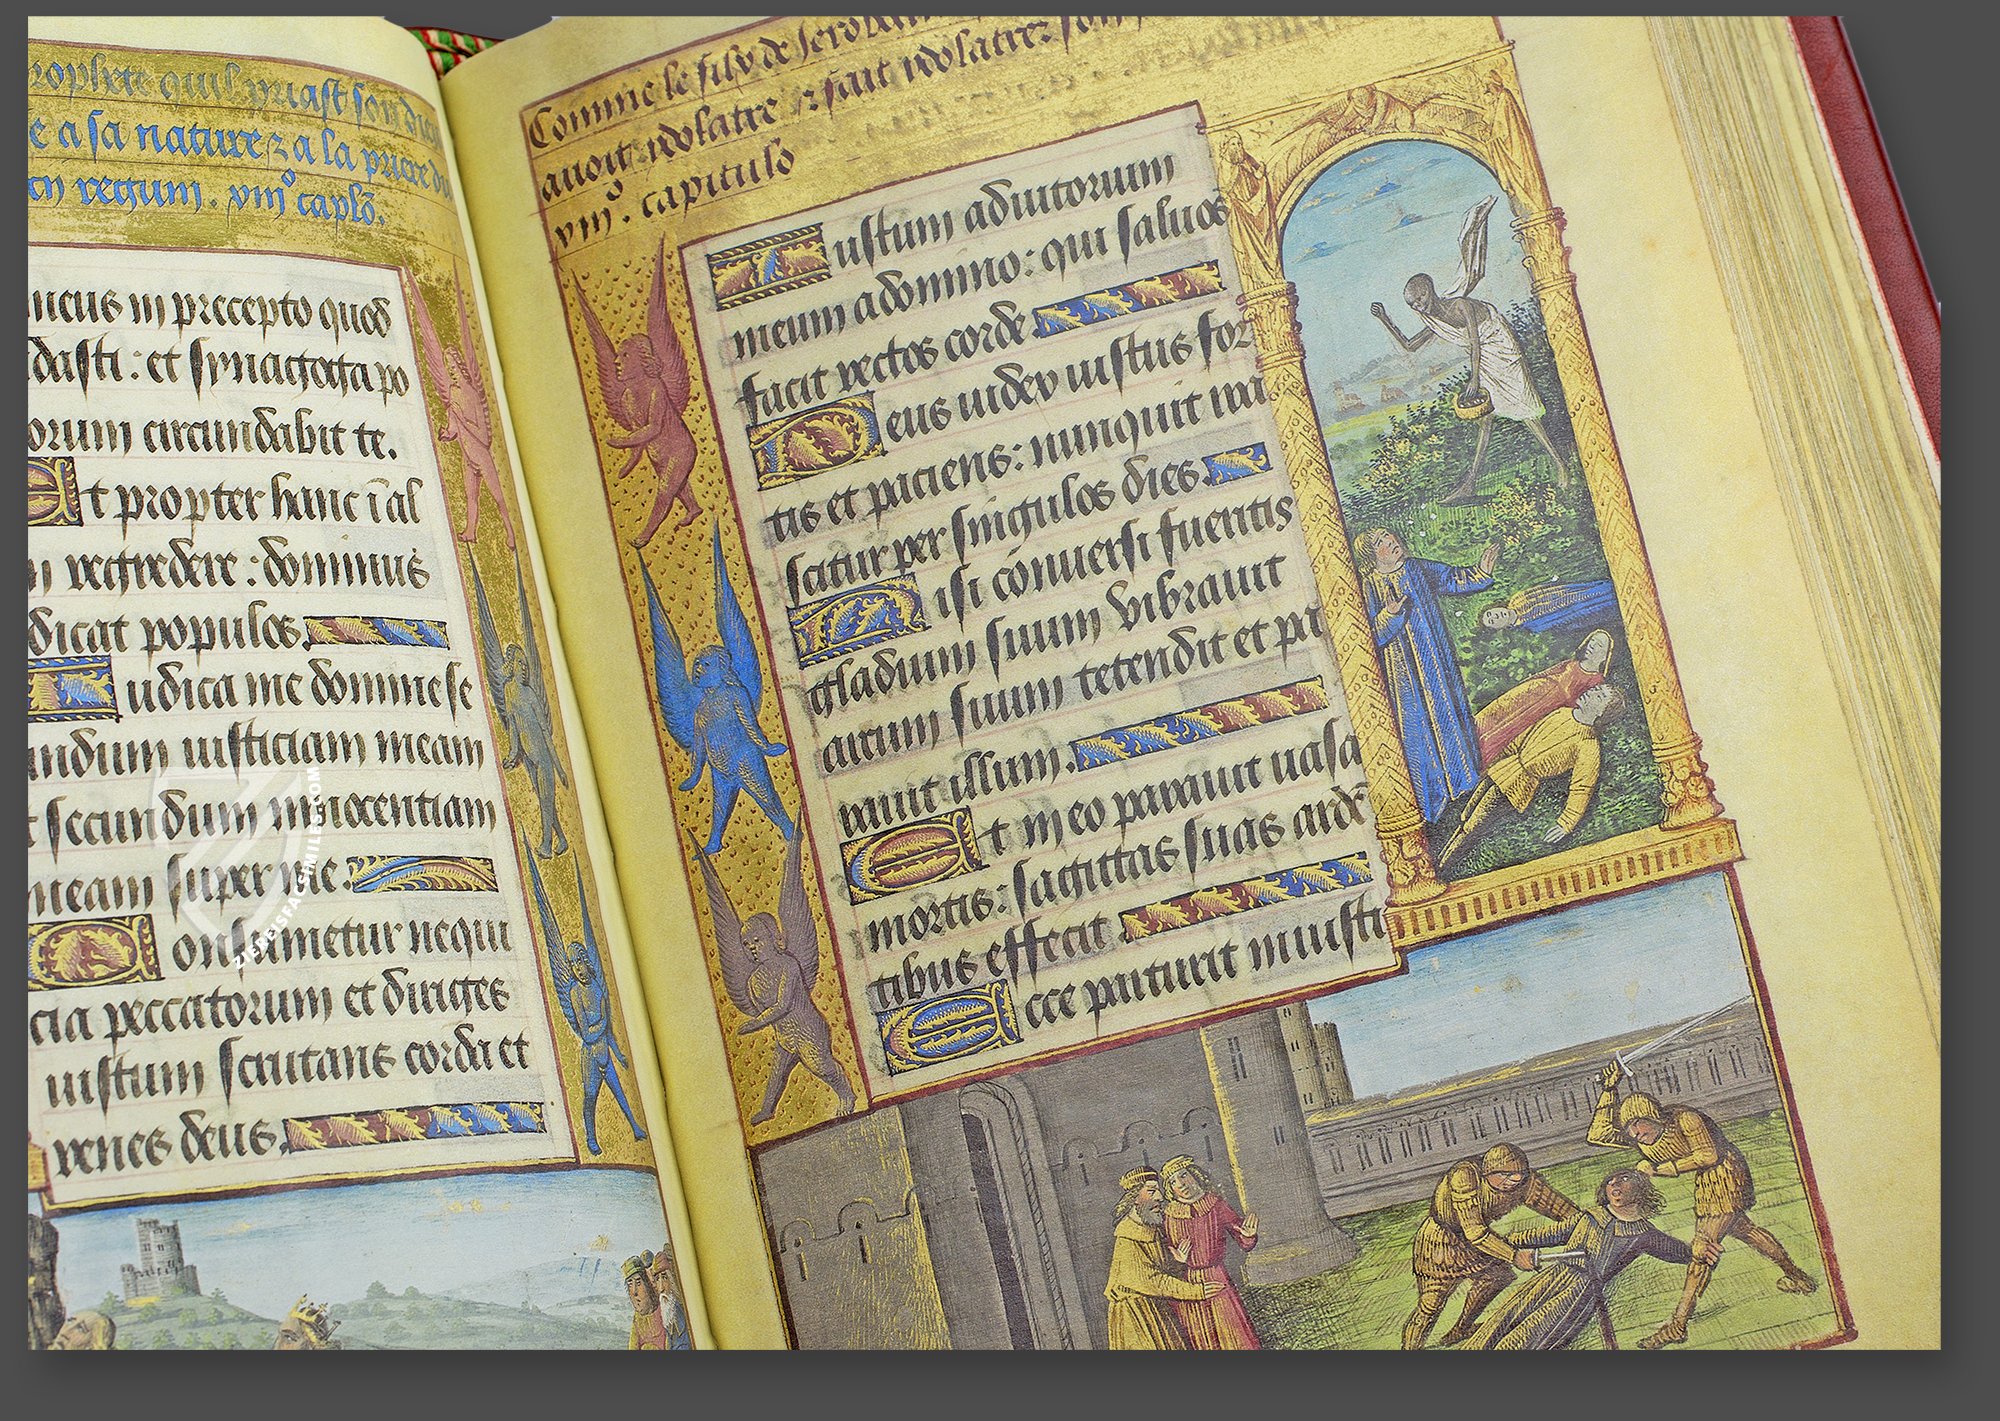 rophete quil priast son dieu
e a sa nature z a la priere du
en regum . xiii° caplō.
ineus in precepto quod
dasti : et synagoga po
orum circundabit te.
Et propter hanc ī al
n regredere : dominus
dicat populos.
Iudica me domine se
undum iusticiam meam
t secundum innocentiam
meam super me.
Consumetur nequi
cia peccatorum et diriges
iustum scrutans corda et
renes deus.
Comme le filz de Jeroboam
avoit ydolatre z fait ydolatrer son
xiii°. capitulo
Iustum adiutorium
meum a domino : qui saluos
facit rectos corde.
Deus iudex iustus for
tis et paciens : nunquit ira
scitur per singulos dies.
Nisi conuersi fueritis
gladium suum vibrauit
arcum suum tetendit et pa
rauit illum.
Et in eo parauit uasa
mortis : sagittas suas ardē
tibus effecit
Ecce parturit iniusti
ZIEREISFACSIMILES.COM